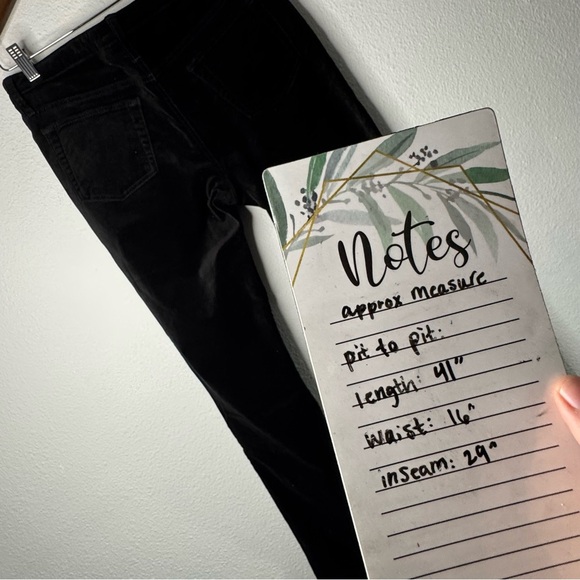 Notes
approx measure
pit to pit:
length: 41"
waist: 16"
inseam: 29"